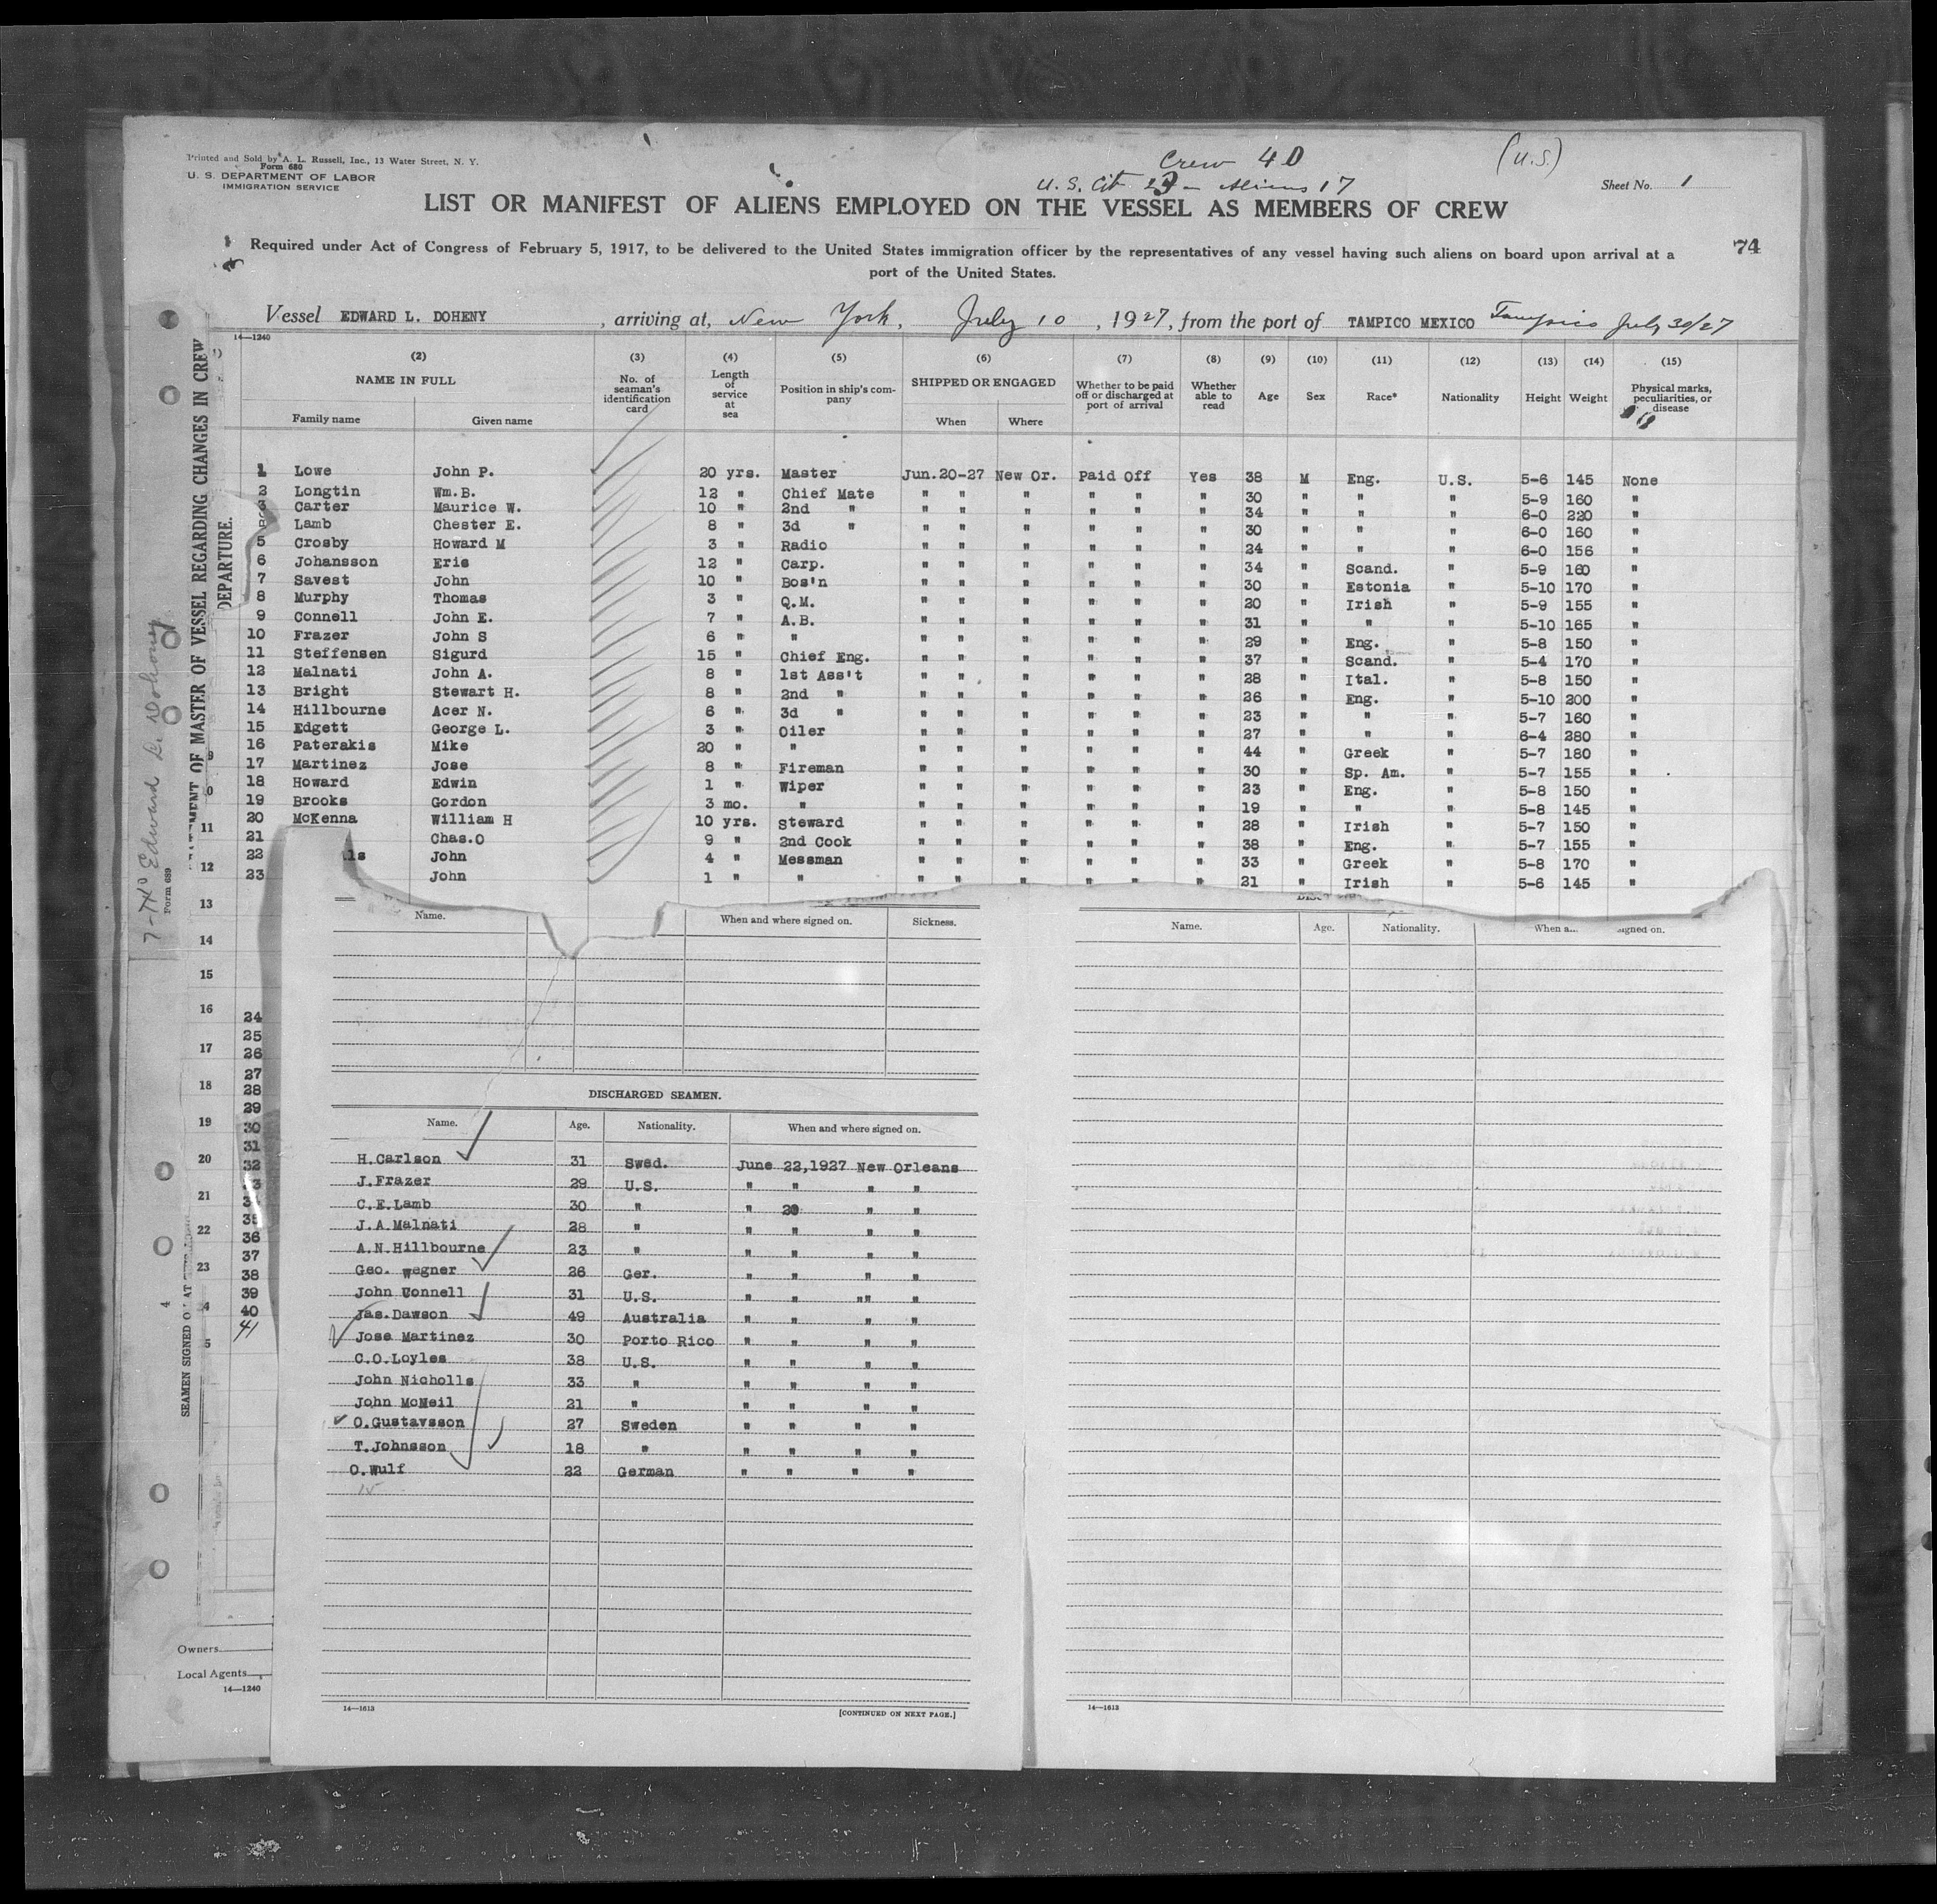 Printed and Sold by A. L. Russell, Inc., 13 Water Street, N. Y.
Form 680
U. S. DEPARTMENT OF LABOR
IMMIGRATION SERVICE
Crew 40
(U.S.)
U. S. Cit. Aliens 17
Sheet No. 1
LIST OR MANIFEST OF ALIENS EMPLOYED ON THE VESSEL AS MEMBERS OF CREW
Required under Act of Congress of February 5, 1917, to be delivered to the United States immigration officer by the representatives of any vessel having such aliens on board upon arrival at a
port of the United States.
74
Vessel EDWARD L. DOHENY, arriving at, New York, July 10, 1927, from the port of TAMPICO MEXICO Tampico July 30/27
14—1240
(2) (3) (4) (5) (6) (7) (8) (9) (10) (11) (12) (13) (14) (15)
NAME IN FULL No. of seaman's identification card Length of service at sea Position in ship's company SHIPPED OR ENGAGED Whether to be paid off or discharged at port of arrival Whether able to read Age Sex Race* Nationality Height Weight Physical marks, peculiarities, or disease
Family name Given name When Where
1 Lowe John P. 20 yrs. Master Jun.20-27 New Or. Paid Off Yes 38 M Eng. U.S. 5-6 145 None
2 Longtin Wm.B. 12 " Chief Mate " " " " " " 30 " " " 5-9 160 "
Carter Maurice W. 10 " 2nd " " " " " " " 34 " " " 6-0 220 "
Lamb Chester E. 8 " 3d " " " " " " " 30 " " " 6-0 160 "
5 Crosby Howard M 3 " Radio " " " " " " 24 " " " 6-0 156 "
6 Johansson Eris 12 " Carp. " " " " " " 34 " Scand. " 5-9 160 "
7 Savest John 10 " Bos'n " " " " " " 30 " Estonia " 5-10 170 "
8 Murphy Thomas 3 " Q.M. " " " " " " 20 " Irish " 5-9 155 "
9 Connell John E. 7 " A.B. " " " " " " 31 " " " 5-10 165 "
10 Frazer John S 6 " " " " " " " " 29 " Eng. " 5-8 150 "
11 Steffensen Sigurd 15 " Chief Eng. " " " " " " 37 " Scand. " 5-4 170 "
12 Malnati John A. 8 " 1st Ass't " " " " " " 28 " Ital. " 5-8 150 "
13 Bright Stewart H. 8 " 2nd " " " " " " " 26 " Eng. " 5-10 200 "
14 Hillbourne Acer N. 6 " 3d " " " " " " " 23 " " " 5-7 160 "
15 Edgett George L. 3 " Oiler " " " " " " 27 " " " 6-4 280 "
16 Paterakis Mike 20 " " " " " " " " 44 " Greek " 5-7 180 "
17 Martinez Jose 8 " Fireman " " " " " " 30 " Sp. Am. " 5-7 155 "
18 Howard Edwin 1 " Wiper " " " " " " 23 " Eng. " 5-8 150 "
19 Brooks Gordon 3 mo. " " " " " " " 19 " " " 5-8 145 "
20 McKenna William H 10 yrs. Steward " " " " " " 28 " Irish " 5-7 150 "
21 Chas.O 9 " 2nd Cook " " " " " " 38 " Eng. " 5-7 155 "
22 ls John 4 " Messman " " " " " " 33 " Greek " 5-8 170 "
23 John 1 " " " " " " " " 21 " Irish " 5-6 145 "
24
25
26
27
28
29
30
31
32
36
37
38
39
40
41
STATEMENT OF MASTER OF VESSEL REGARDING CHANGES IN CREW
DEPARTURE.
7-40 Edward L. Doheny
Form 689
11
12
13
14
15
16
17
18
19
20
21
22
23
4
5
SEAMEN SIGNED O AT
Owners
Local Agents
14—1240
Name. When and where signed on. Sickness.
DISCHARGED SEAMEN.
Name. Age. Nationality. When and where signed on.
H.Carlson 31 Swed. June 22,1927 New Orleans
J.Frazer 29 U.S. " " " "
C.E.Lamb 30 " " 20 " "
J.A.Malnati 28 " " " " "
A.N.Hillbourne 23 " " " " "
Geo. Wagner 26 Ger. " " " "
John Connell 31 U.S. " " "" "
Jas.Dawson 49 Australia " " " "
Jose Martinez 30 Porto Rico " " " "
C.O.Loyles 38 U.S. " " " "
John Nicholls 33 " " " " "
John McNeil 21 " " " " "
O.Gustavsson 27 Sweden " " " "
T.Johnsson 18 " " " " "
O.Wulf 22 German " " " "
15
14—1613
[CONTINUED ON NEXT PAGE.]
Name. Age. Nationality. When a igned on.
14—1613